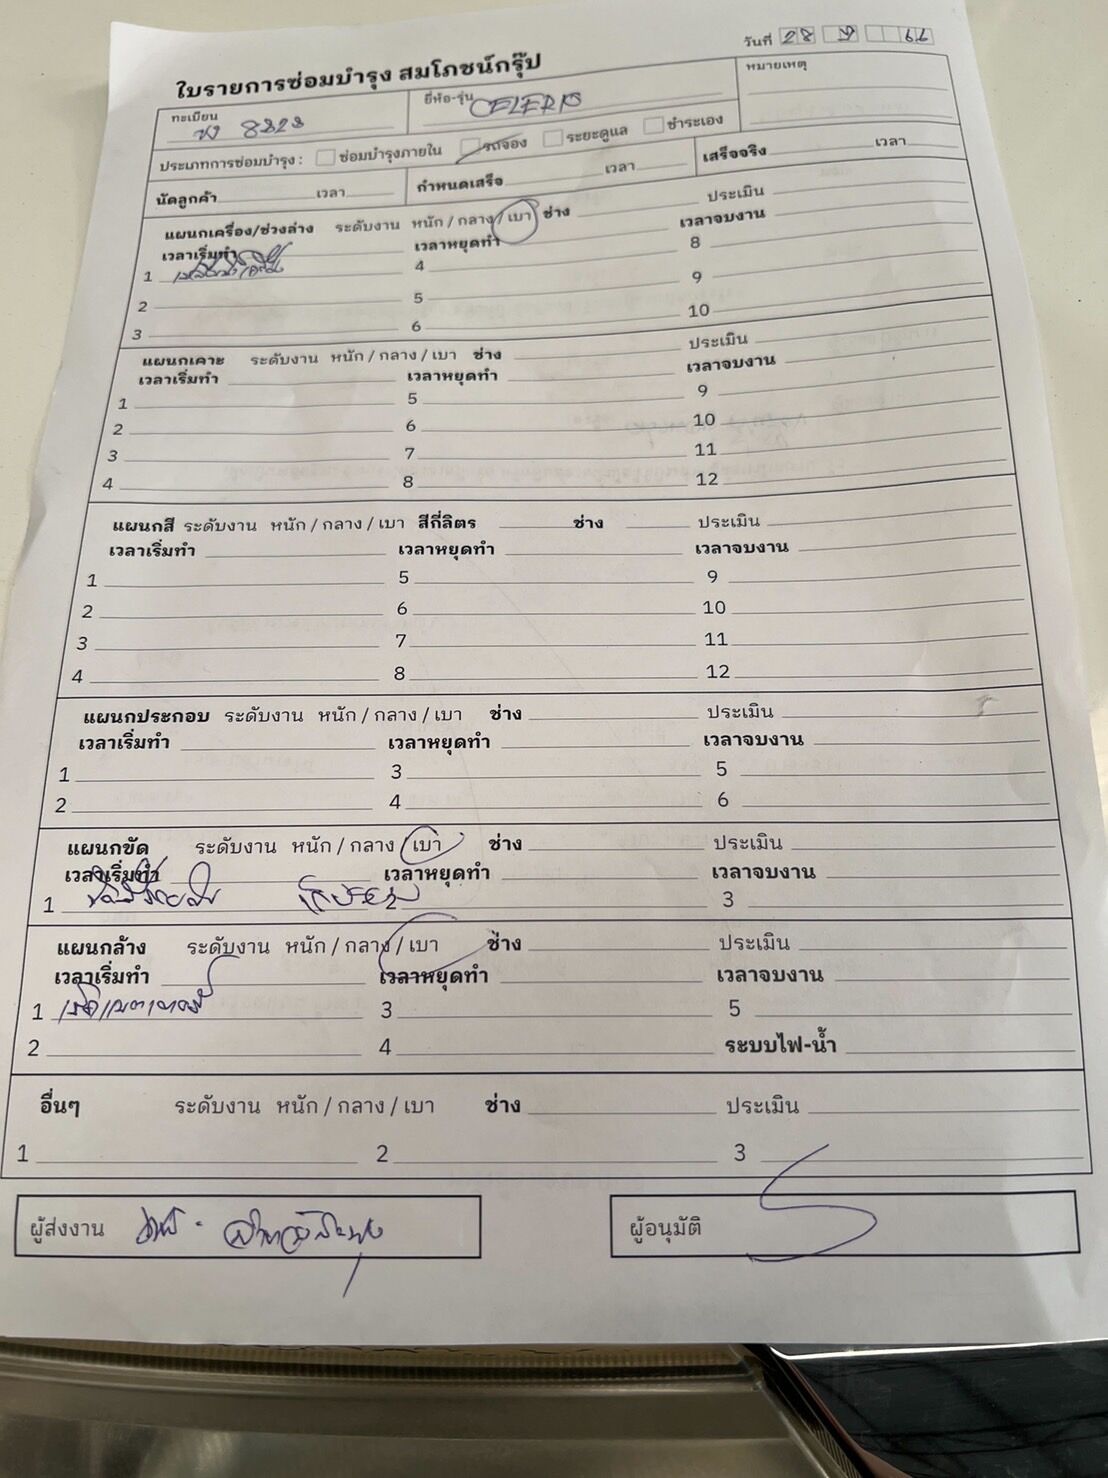 วันที่ 28
ใบรายการซ่อมบำรุง สมโภชน์กรุ๊ป
ทะเบียน 8323 ยี่ห้อ-รุ่น CELERIO หมายเหตุ
ประเภทการซ่อมบำรุง : ซ่อมบำรุงภายใน รถจอง ระยะดูแล ชำระเอง
นัดลูกค้า เวลา กำหนดเสร็จ เวลา เสร็จจริง เวลา
แผนกเครื่อง/ช่วงล่าง ระดับงาน หนัก / กลาง / เบา ช่าง ประเมิน
เวลาเริ่มทำ เวลาหยุดทำ เวลาจบงาน
1 4 8
2 5 9
3 6 10
แผนกเคาะ ระดับงาน หนัก / กลาง / เบา ช่าง ประเมิน
เวลาเริ่มทำ เวลาหยุดทำ เวลาจบงาน
1 5 9
2 6 10
3 7 11
4 8 12
แผนกสี ระดับงาน หนัก / กลาง / เบา สีกี่ลิตร ช่าง ประเมิน
เวลาเริ่มทำ เวลาหยุดทำ เวลาจบงาน
1 5 9
2 6 10
3 7 11
4 8 12
แผนกประกอบ ระดับงาน หนัก / กลาง / เบา ช่าง ประเมิน
เวลาเริ่มทำ เวลาหยุดทำ เวลาจบงาน
1 3 5
2 4 6
แผนกขัด ระดับงาน หนัก / กลาง / เบา ช่าง ประเมิน
เวลาเริ่มทำ เวลาหยุดทำ เวลาจบงาน
1 2 3
แผนกล้าง ระดับงาน หนัก / กลาง / เบา ช่าง ประเมิน
เวลาเริ่มทำ เวลาหยุดทำ เวลาจบงาน
1 3 5
2 4 ระบบไฟ-น้ำ
อื่นๆ ระดับงาน หนัก / กลาง / เบา ช่าง ประเมิน
1 2 3
ผู้ส่งงาน ผู้อนุมัติ